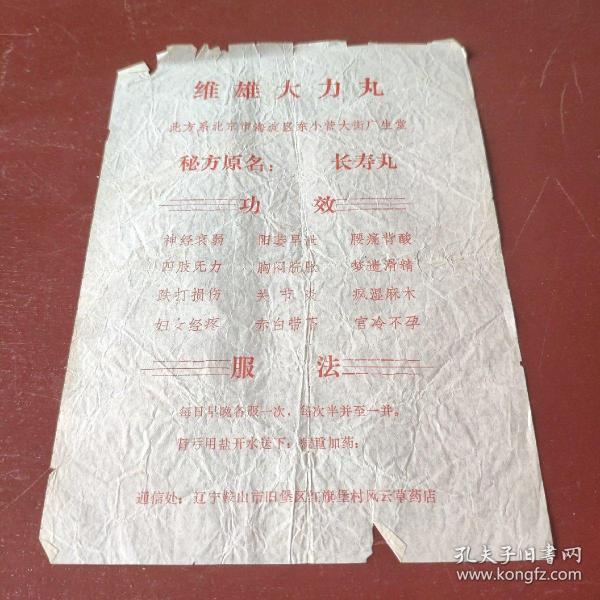 维雄大力丸
此方系北京市海淀区东小营大街广生堂
秘方原名： 长寿丸
功 效
神经衰弱 阳萎早泄 腰痛背酸
四肢无力 胸闷 胀 梦遗滑精
跌打损伤 关节炎 疯湿麻木
妇女经疼 赤白带下 宫冷不孕
服 法
每日早晚各服一次，每次半并至一并。
肾亏用盐开水送下； 重加药；
通信处：辽宁鞍山市旧堡区红旗堡村风云草药店
孔夫子旧书网
www.kongfz.com